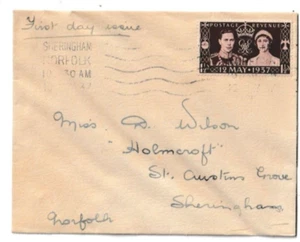 First day issue
SHERINGHAM
NORFOLK
POSTAGE REVENUE
12 MAY 1937
Miss D. Wilson
"Holmcroft"
St. Austins Grove
Sheringham
Norfolk